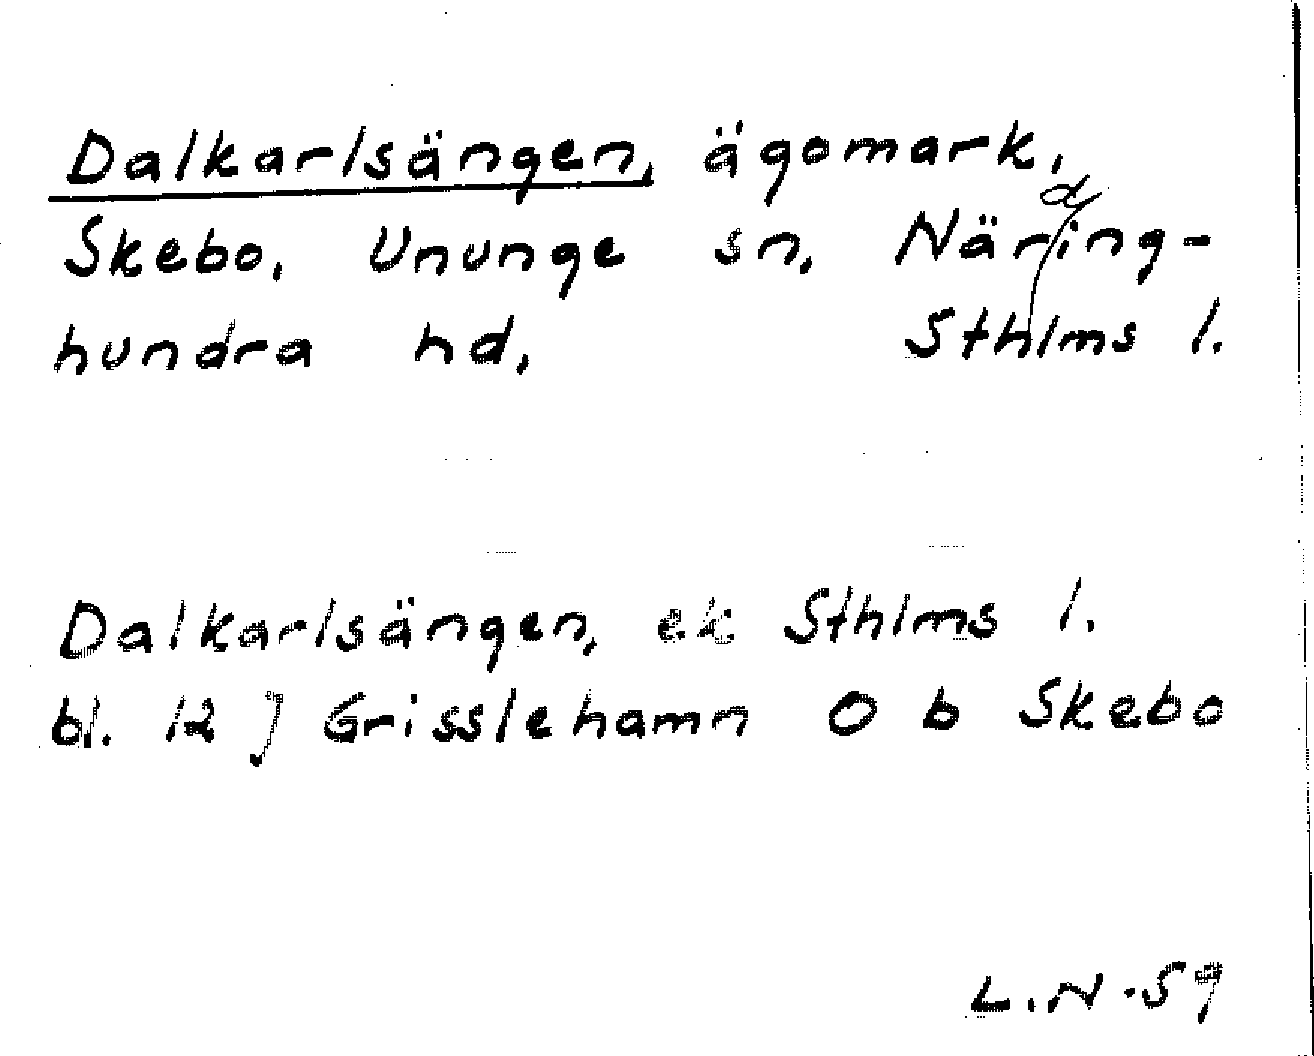 Dalkarlsängen, ägomark,
Skebo, Ununge sn, Närding-
hundra hd, Sthlms l.
Dalkarlsängen, ek Sthlms l.
bl. 12 J Grisslehamn O b Skebo
L.N-59